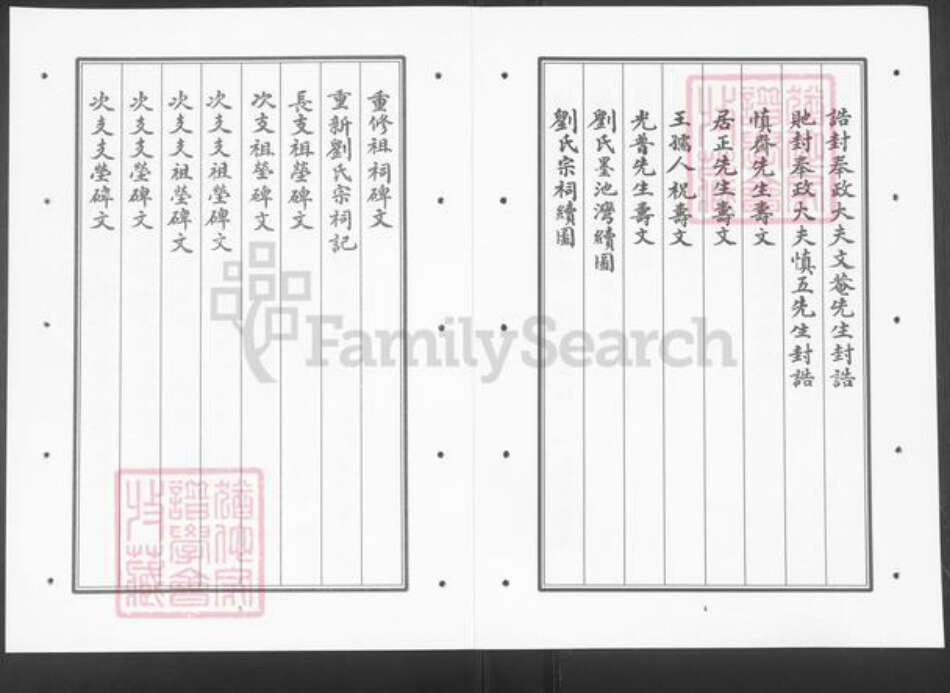 誥封奉政大夫文菴先生封誥
貤封奉政大夫慎五先生封誥
慎齋先生壽文
居正先生壽文
王孺人祝壽文
光普先生壽文
劉氏墨池灣續圖
劉氏宗祠續圖
重修祖祠碑文
重新劉氏宗祠記
長支祖塋碑文
次支祖塋碑文
次支支祖塋碑文
次支支祖塋碑文
次支支塋碑文
次支支塋碑文
FamilySearch